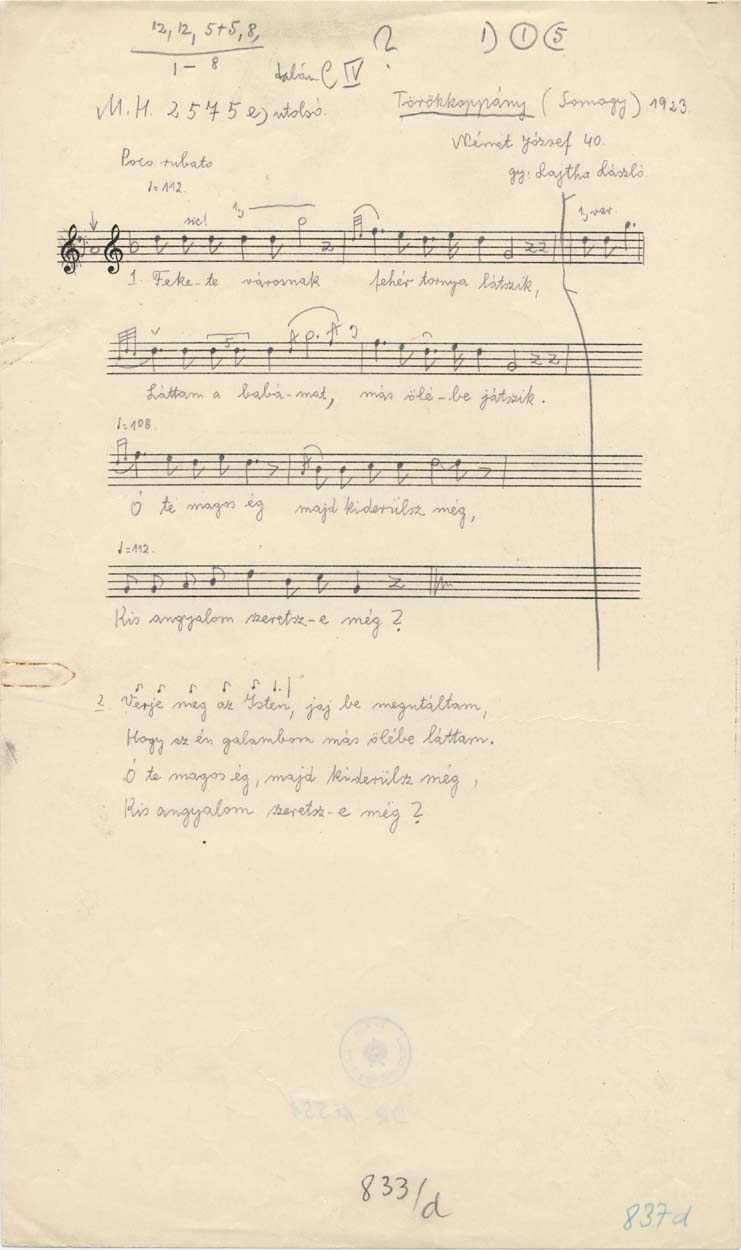 12, 12, 5+5, 8,
1 – 8
?
1) ① 5
talán C IV
M.H. 2575 e) utolsó.
Törökkoppány (Somogy) 1923
Német József 40.
gy: Lajtha László.
Poco rubato
♩=112.
sic!
1)
1) var.
1. Feke-te városnak fehér tornya látszik,
5
Láttam a babá-mat, más ölé-be játszik.
♩=108.
Ó te magos ég majd kiderülsz még,
♩=112.
Kis angyalom szeretsz-e még?
2 Verje meg az Isten, jaj be megutáltam,
Hogy az én galambom más ölébe láttam.
Ó te magos ég, majd kiderülsz még,
Kis angyalom szeretsz-e még?
833/d
837d